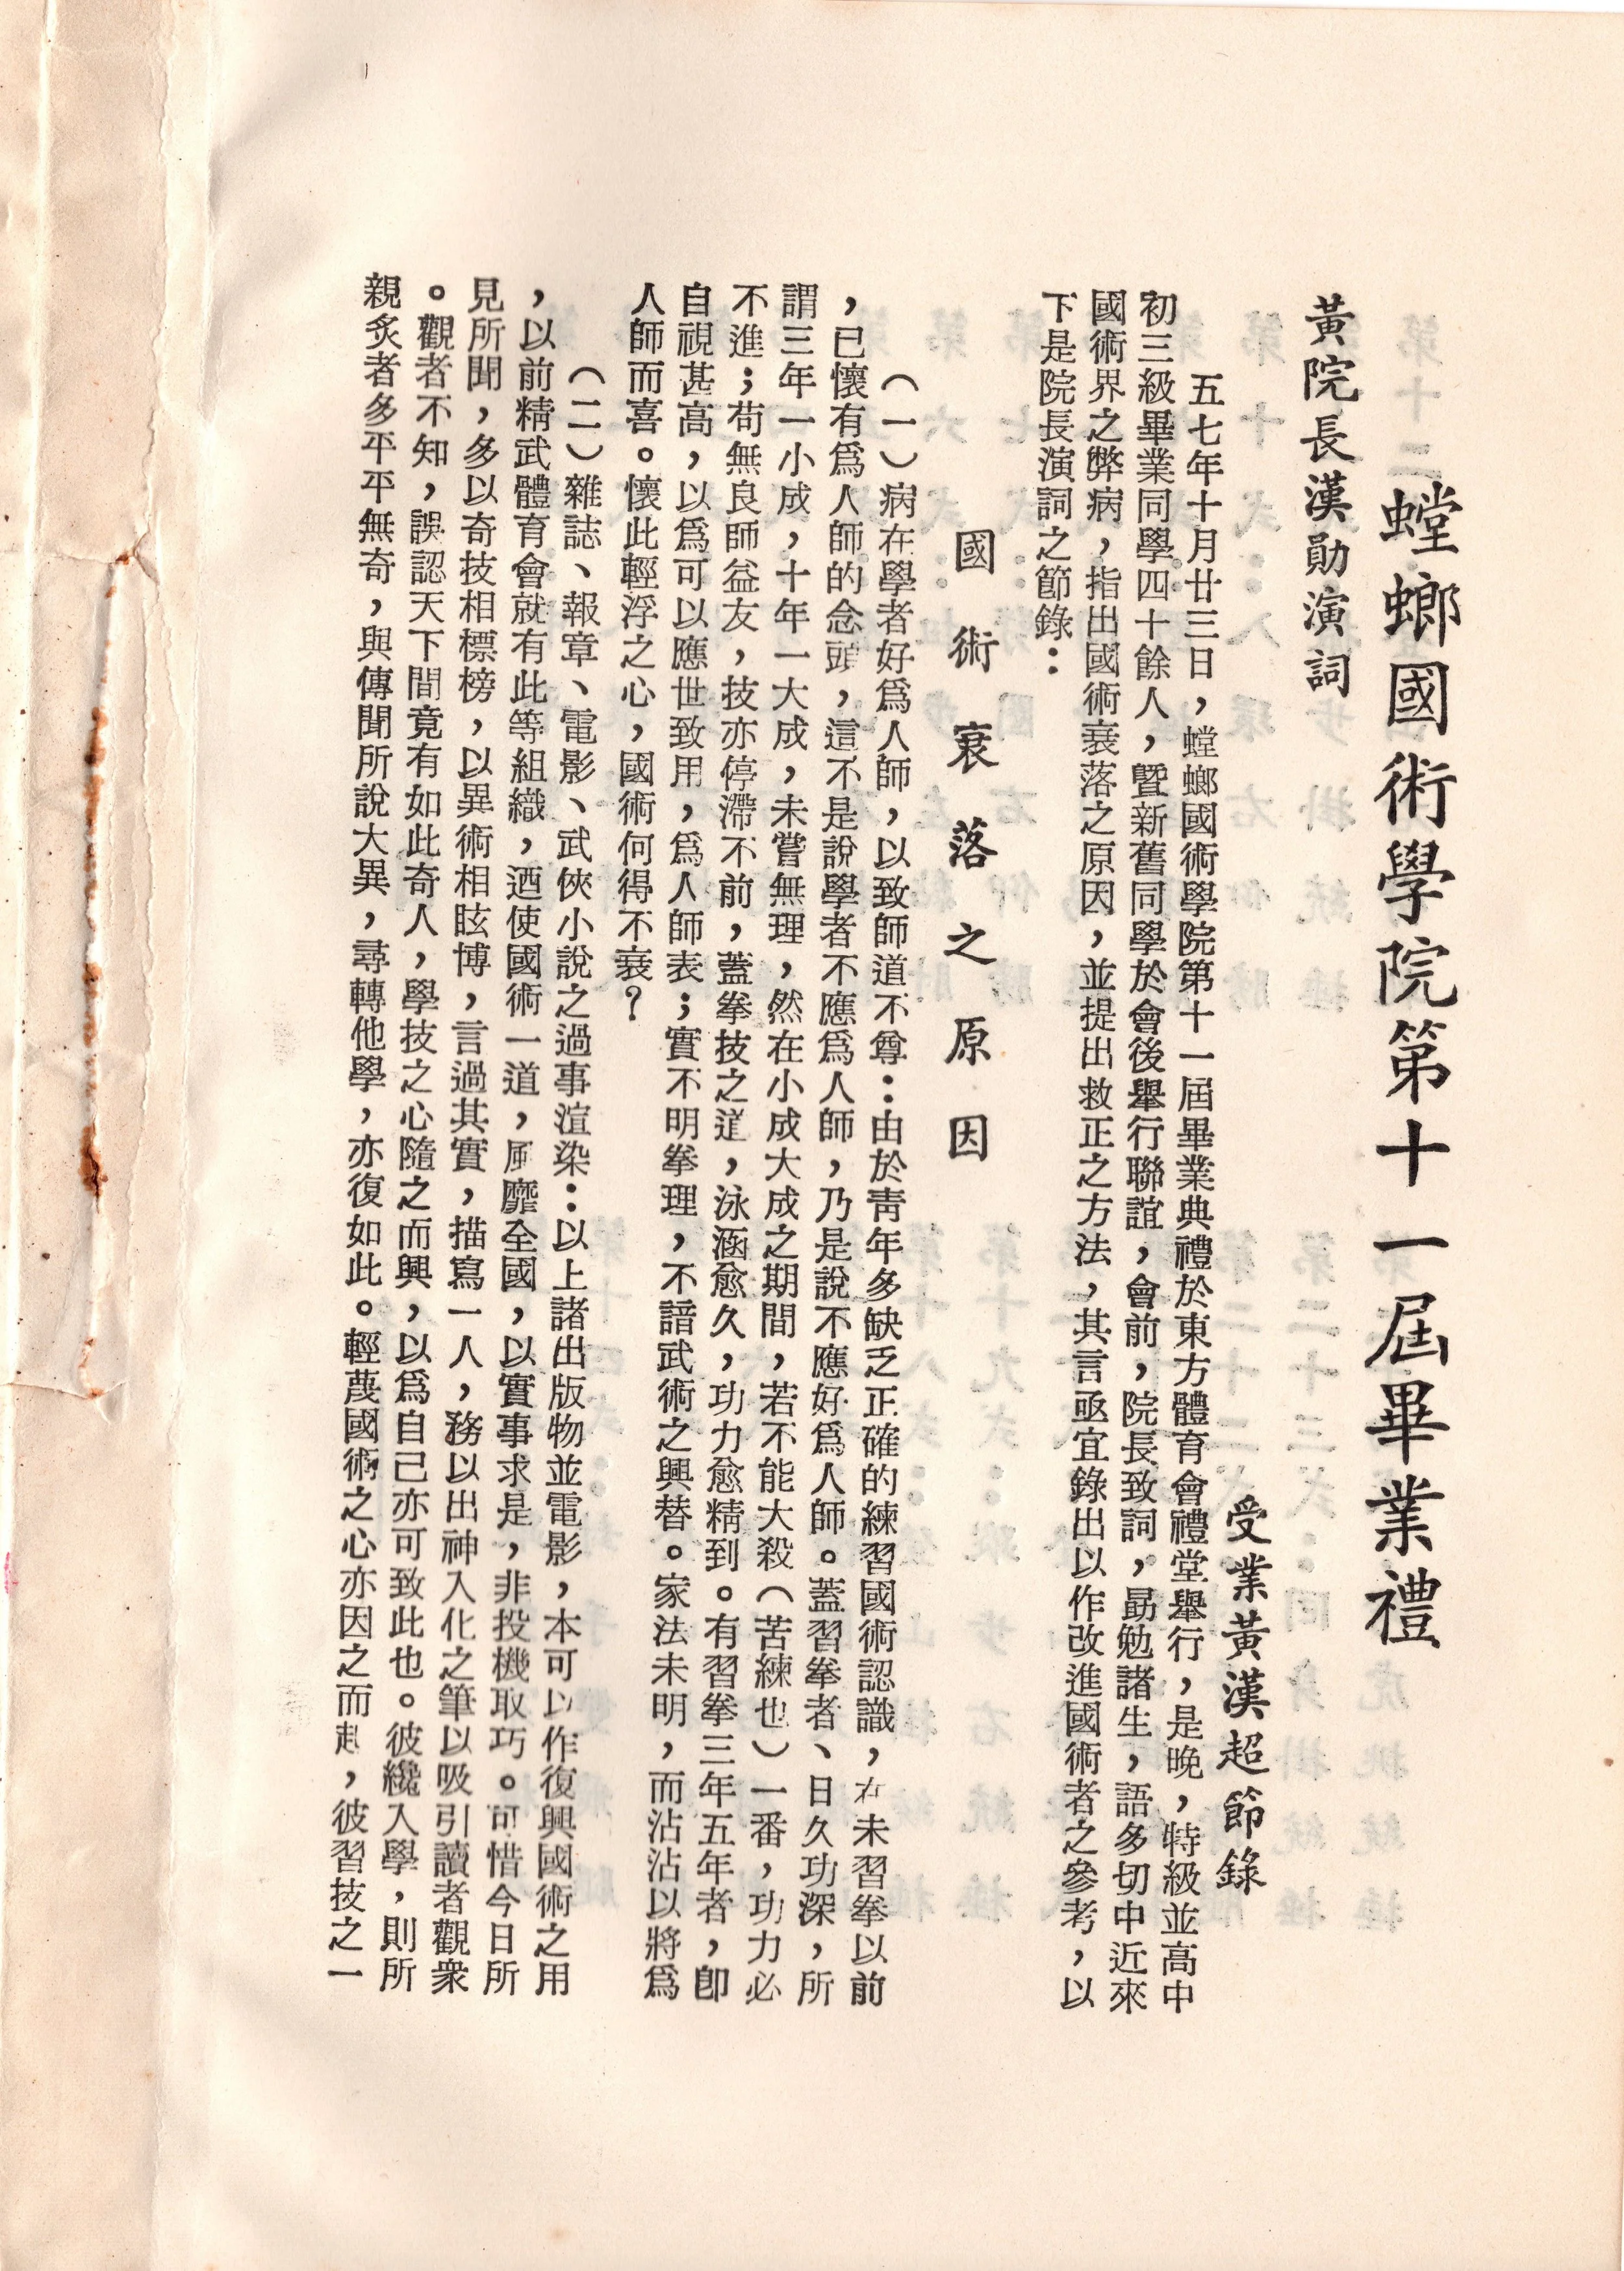 螳螂國術學院第十一屆畢業禮
黃院長漢勛演詞
受業黃漢超節錄
五七年十月廿三日，螳螂國術學院第十一屆畢業典禮於東方體育會禮堂舉行，是晚，特級並高中
初三級畢業同學四十餘人，暨新舊同學於會後舉行聯誼，會前，院長致詞，勗勉諸生，語多切中近來
國術界之弊病，指出國術衰落之原因，並提出救正之方法，其言亟宜錄出以作改進國術者之參考，以
下是院長演詞之節錄：
國術衰落之原因
（一）病在學者好爲人師，以致師道不尊：由於青年多缺乏正確的練習國術認識，在未習拳以前
，已懷有爲人師的念頭，這不是說學者不應爲人師，乃是說不應好爲人師。蓋習拳者、日久功深，所
謂三年一小成，十年一大成，未嘗無理，然在小成大成之期間，若不能大殺（苦練也）一番，功力必
不進；苟無良師益友，技亦停滯不前，蓋拳技之道，泳涵愈久，功力愈精到。有習拳三年五年者，卽
自視甚高，以爲可以應世致用，爲人師表；實不明拳理，不諳武術之興替。家法未明，而沾沾以將爲
人師而喜。懷此輕浮之心，國術何得不衰？
（二）雜誌、報章、電影、武俠小說之過事渲染：以上諸出版物並電影，本可以作復興國術之用
，以前精武體育會就有此等組織，迺使國術一道，風靡全國，以實事求是，非投機取巧。可惜今日所
見所聞，多以奇技相標榜，以異術相眩博，言過其實，描寫一人，務以出神入化之筆以吸引讀者觀衆
。觀者不知，誤認天下間竟有如此奇人，學技之心隨之而興，以爲自己亦可致此也。彼纔入學，則所
親炙者多平平無奇，與傳聞所說大異，尋轉他學，亦復如此。輕蔑國術之心亦因之而起，彼習技之一